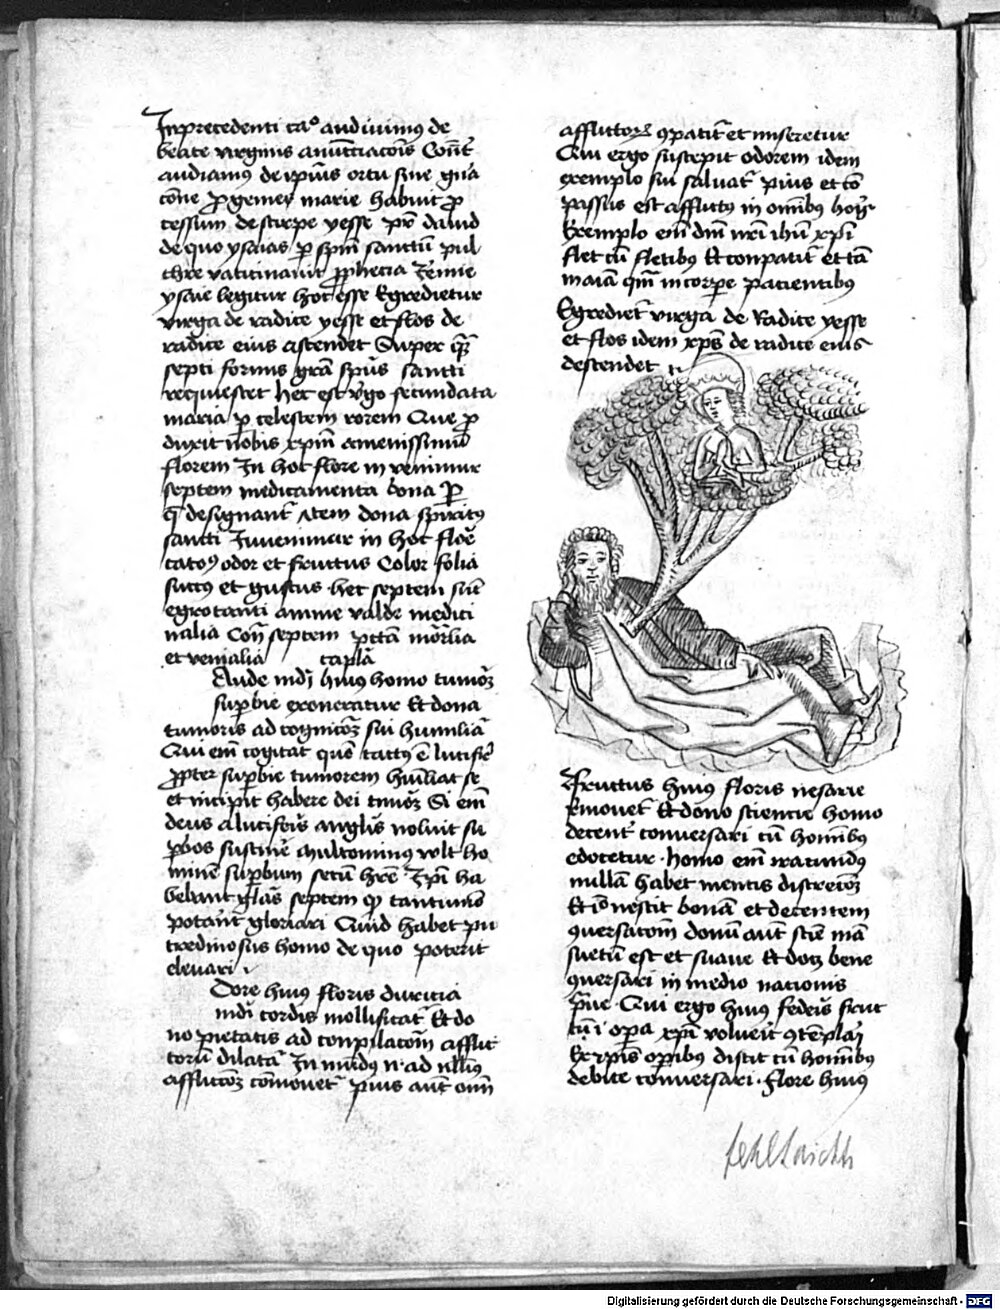 In precedenti cao audiuimus de
beate virginis anuncciacois Conc̄
audiamus de ip̄ius ortu siue gn̄a
cōne progenies marie habuit pro
cessum de stirpe yesse pr̄e dauid
de quo ysaias per spm̄ sanctū pul
chre vaticinauit
ysaie legitur hoc esse Egredietur
virga de radice yesse et flos de
radice eius ascendet Super quē
septi formis grā spūs sancti
requiescet hec est v̄go fecundata
maria per celestem rorem Que pro
duxit nobis xp̄m amenissimū
florem In hoc flore in veniuntur
septem medicamenta bona per
q̄ designant̄ septem dona spiritus
sancti Inueniuntur in hoc flore
odor et fructus Color folia
succus et gustus hec septem sūt
egrotanti anime valde medici
nalia Con̄ septem pctā mōrlia
et venialia caplā
Aude huius homo tumorē
superbie exoneratur Et dono
timoris ad cognicōꝫ sui humiliat̄
Qui em̄ cogitat quō e lucifer
propter superbie tumorem humiliat se
et incipit habere dei timoꝫ Si em̄
deus a luciferis angelis noluit su
perbos sustinere multominus wlt ho
minem superbum secū hr̄e Ip̄i ha
bebant septem quo tantūmō
poterant gloriari Quid habet pu
tredinosus homo de quo poterit
eleuari
Odore huius floris duricia
cordis mollificat̄ Et do
no pietatis ad conpassiacom̄ afflic
torū dilatat̄ In n̄ ad nllius
afflictoꝫ cōmouet̄ pius aūt om̄
afflictorꝫ ꝯpatit̄ et miseretur
Qui ergo suscepit odorem idem
exemplo sui saluat̄ pius et cō
passus est afflictus in omibus hoīs
Exemplo em̄ dm̄ nr̄i ihū xp̄i
flet cū fletibus Et conpatit̄ et tā
in corpore pacientibus
Egrediet̄ virga de Radice yesse
et flos idem xp̄s de radice eius
descendet
Fructus huius floris
Emouet̄ Et dono sciencie homo
decent̄ conuersari cū homibus
edocetur homo em̄ iracundus
nullā habet mentis discreciōꝫ
Et iō nescit bonā et decentem
ꝯuersacom̄ donū aūt scie mā
suetū est et suaue Et docꝫ bene
ꝯuersari in medio nacionis
praue Qui ergo huius federis fruc
tū ī opa xp̄i voluerit ꝯtēplari
Ex ip̄is operibus discit cū homibus
debite conuersari Flore huius
Digitalisierung gefördert durch die Deutsche Forschungsgemeinschaft - DFG